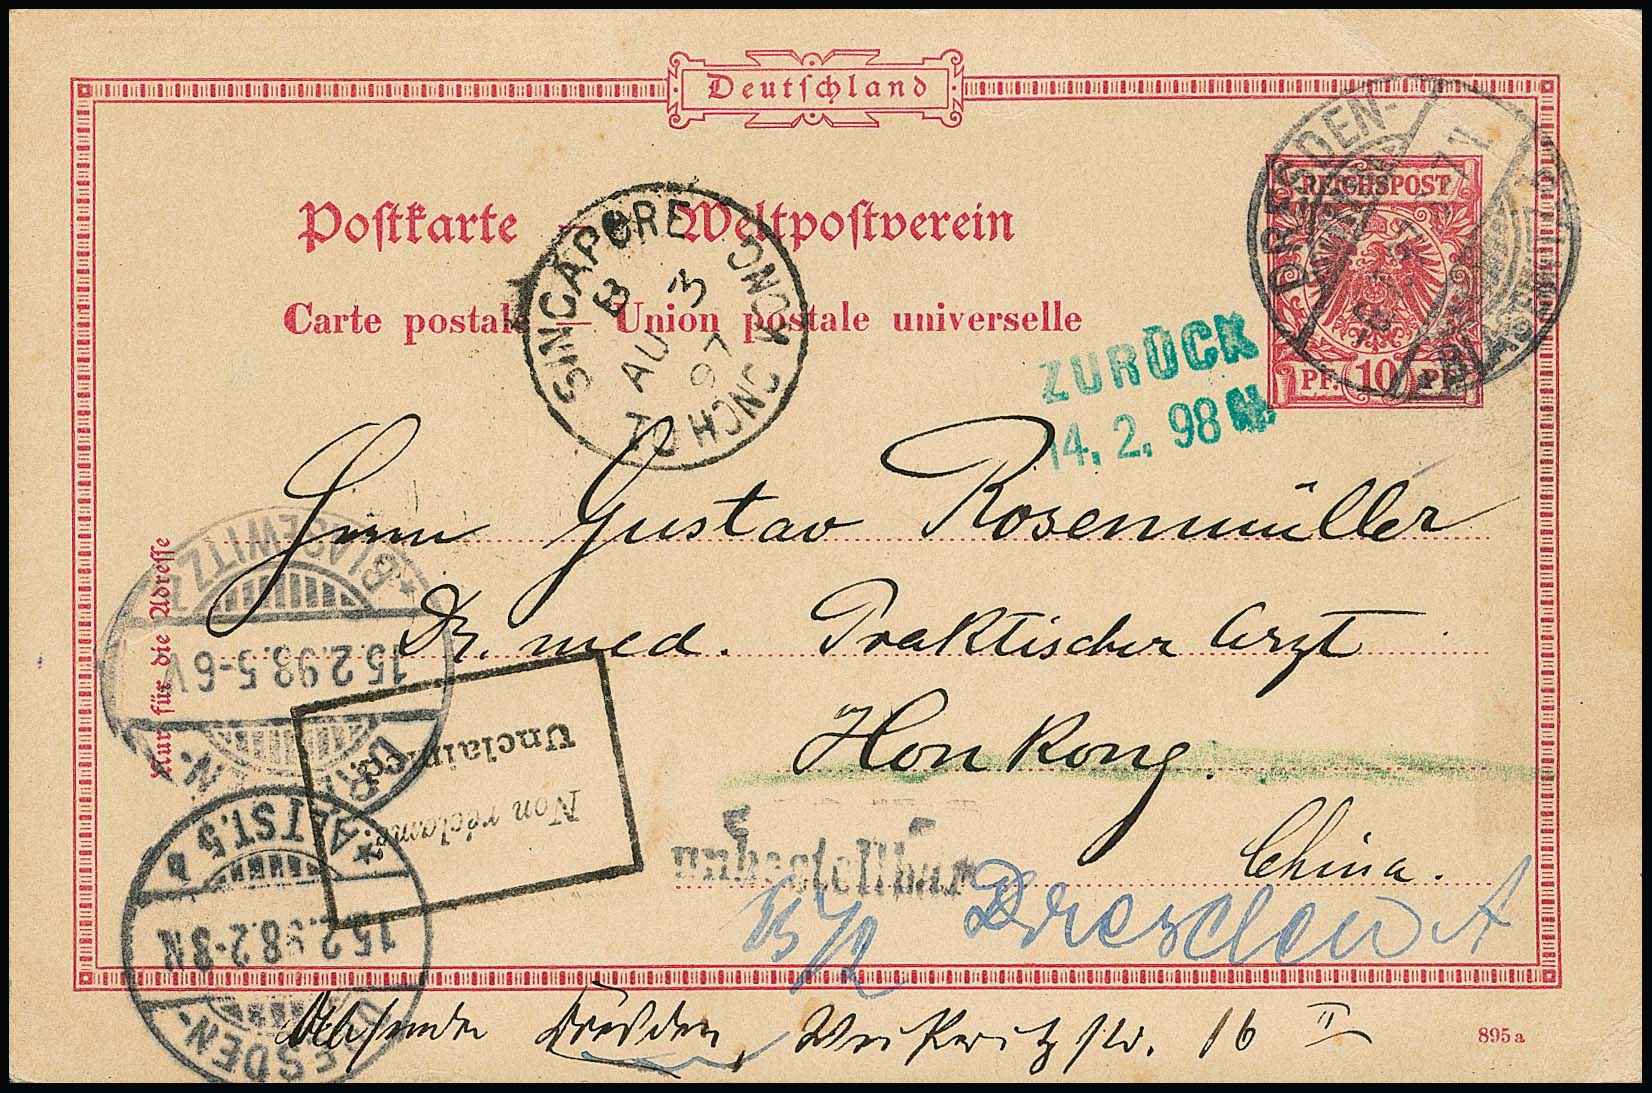 Deutschland
Postkarte — Weltpostverein
Carte postale — Union postale universelle
REICHSPOST
PF. 10 PF.
DRESDEN-
BLASEWITZ
SINGAPORE TO HONG KONG
B
AU 3
97
ZURÜCK
14. 2. 98 N.
Herrn Gustav Rosenmüller
Dr. med. Praktischer Arzt
Hon Kong.
China.
Nur für die Adresse
BLASEWITZ
15.2.98.5-6V
Unclaimed.
Non réclamé.
unbestellbar
15/2 Dresden A
ALTST. 5 b
15.2.98.2-3N
DRESDEN-
Absender Dresden, 16 II
895 a